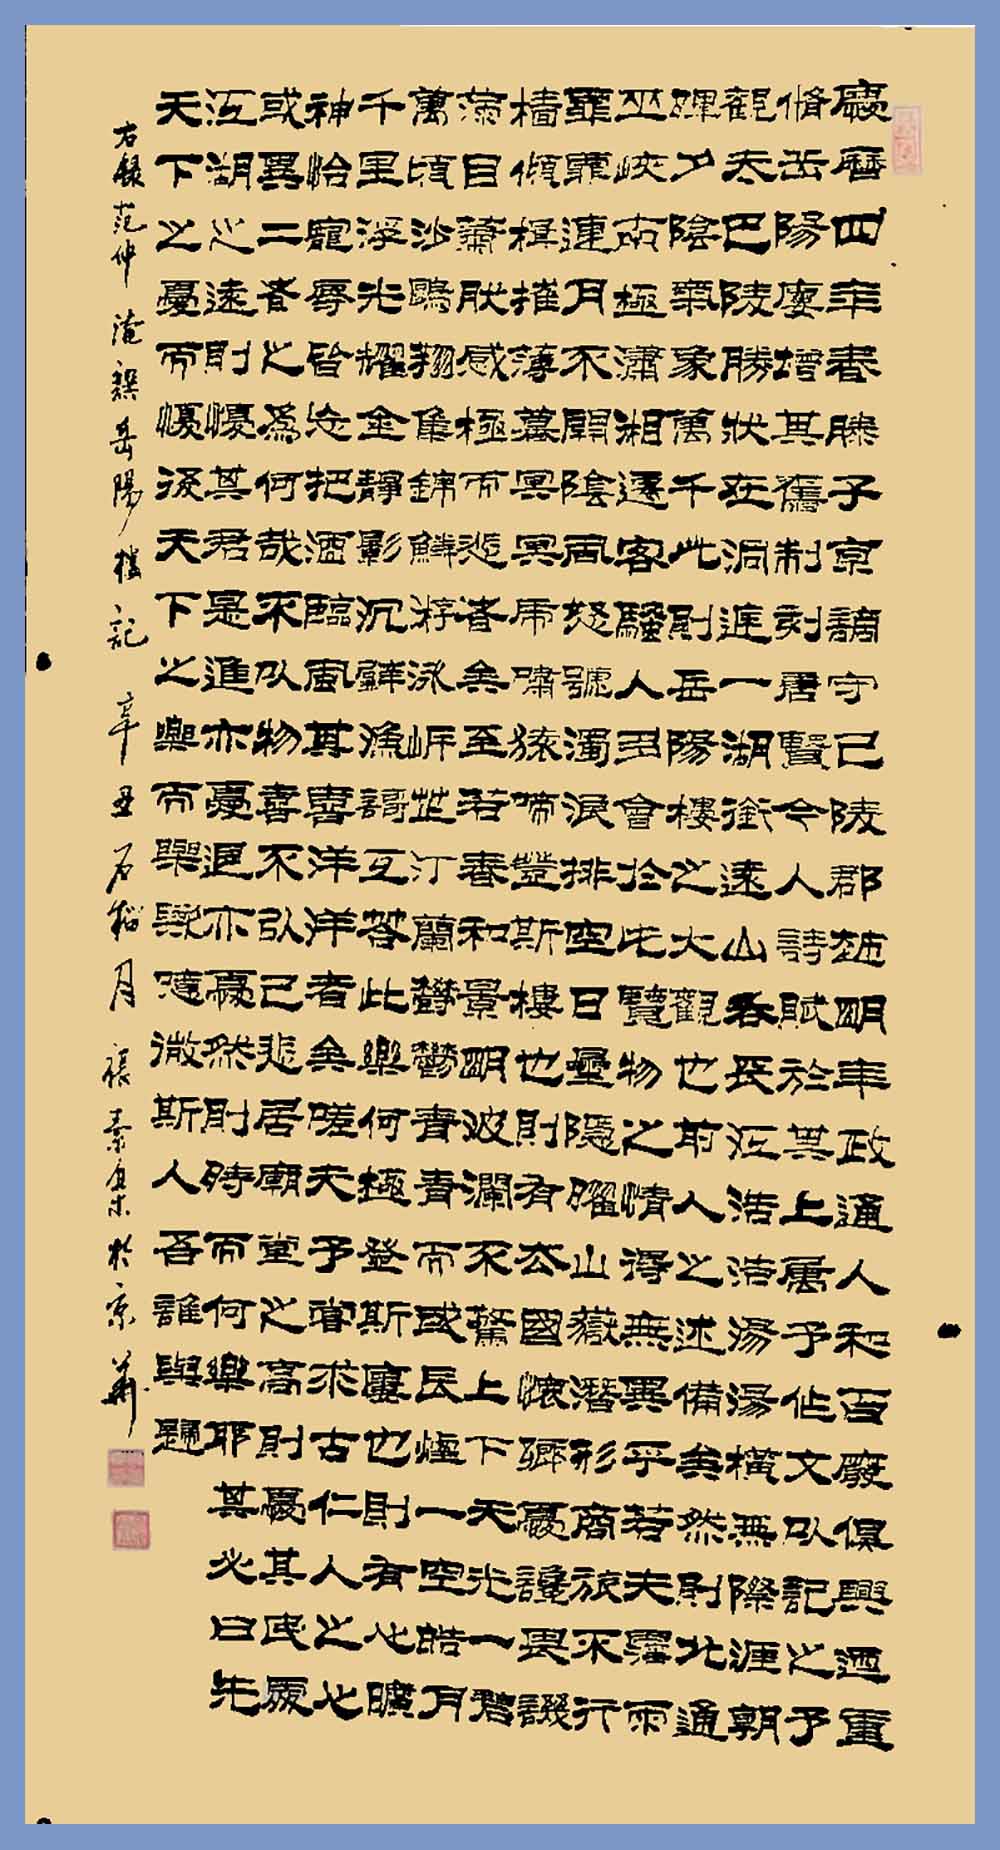 慶曆四年春滕子京謫守己陵郡越明年政通人和百廢俱興廼重
脩岳陽樓增其舊制刻唐賢今人詩賦於其上属予作文以記之予
觀夫巴陵勝狀在洞庭一湖銜遠山吞長江浩浩湯湯橫無際涯朝
暉夕陰氣象萬千此則岳陽樓之大觀也前人之述備矣然則北通
巫峽南極瀟湘遷客騷人多會於此覽物之情得無異乎若夫霪雨
霏霏連月不開陰風怒號濁浪排空日星隱曜山嶽潛形商旅不行
檣傾楫摧薄暮冥冥虎嘯猿啼登斯樓也則有去國懷鄉憂讒畏譏
滿目蕭然感極而悲者矣至若春和景明波瀾不驚上下天光一碧
萬頃沙鷗翔集錦鱗游泳岸芷汀蘭鬱鬱青青而或長煙一空皓月
千里浮光耀金靜影沉璧漁歌互答此樂何極登斯樓也則有心曠
神怡寵辱皆忘把酒臨風其喜洋洋者矣嗟夫予嘗求古仁人之心
或異二者之為何哉不以物喜不以己悲居廟堂之高則憂其民處
江湖之遠則憂其君是進亦憂退亦憂然則時而何樂耶其必曰先
天下之憂而憂後天下之樂而樂歟噫微斯人吾誰與歸
右錄范仲淹撰岳陽樓記 辛丑石榴月 於京華